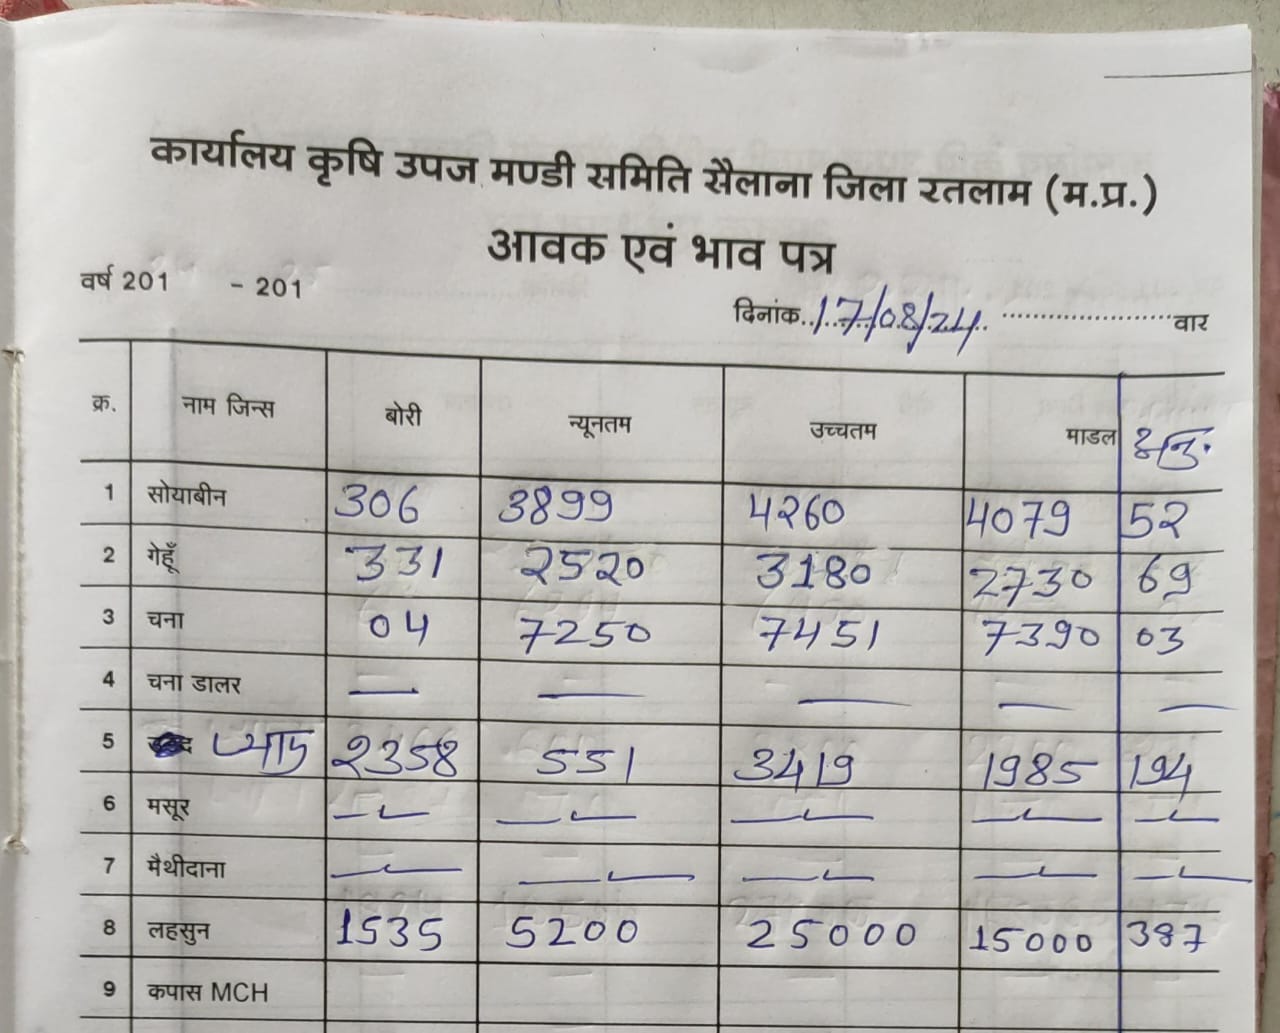 कार्यालय कृषि उपज मण्डी समिति सैलाना जिला रतलाम (म.प्र.)
आवक एवं भाव पत्र
वर्ष 201 - 201
दिनांक..17/08/24.....................वार
क्र. नाम जिन्स बोरी न्यूनतम उच्चतम माडल
1 सोयाबीन 306 3899 4260 4079 52
2 गेहूँ 331 2520 3180 2730 69
3 चना 04 7250 7451 7390 03
4 चना डालर — — — — —
5 प्याज 2358 551 3419 1985 194
6 मसूर — — — — —
7 मैथीदाना — — — — —
8 लहसुन 1535 5200 25000 15000 387
9 कपास MCH